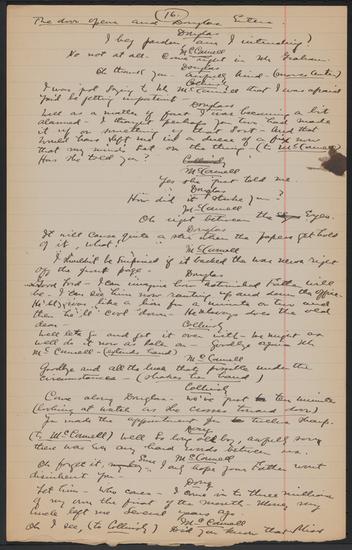 16.
The door opens and Douglas Enters
Douglas
I beg pardon, am I intruding?
McConnell
No not at all. Come right in Mr Graham.
Douglas
Oh thank you - awfully kind - (moves center)
Collins
I was just saying to Mr McConnell that I was afraid
you'd be getting impatient
Douglas
Well as a matter of fact I was becoming a bit
alarmed - I thought perhaps you two had made
it up or something of that sort - And that
would have left me in a deuce of a fix now
that my mind's set on the thing, (to McConnell)
Has she told you?
McConnell
Yes she just told me.
Douglas
How did it strike you?
McConnell
Oh right between the Eyes.
Douglas
It will cause quite a stir when the papers get hold
of it, what?
McConnell
I shouldn't be surprised if it backed the war news right
off the front page -
Douglas
Good Lord - I can imagine how astonished Father will
be - I can see him now ranting up and down the office.
He'll give like a lion for a minute or two and
then he'll cool down. He always does the old
dear -
Collins
Well lets go and get it over with - We might as
well do it now as later on - Goodbye again Mr
McConnell - (extends hand)
McConnell
Goodbye and all the luck that's possible under the
circumstances - (shakes her hand)
Collins
Come along Douglas - we've just ten minutes
(looking at watch as she crosses toward door)
I made the appointment for twelve sharp.
Doug
(to McConnell) Well So long old boy, awfully sorry
there was any hard words between us.
McConnell
Oh forget it, I only hope your Father wont
disinherit you -
Doug
Let him - Who cares - I come into three millions
of my own the first of the month - Money my
uncle left me several years ago -
McConnell
Oh I see, (to Collins) Did you know that Miss